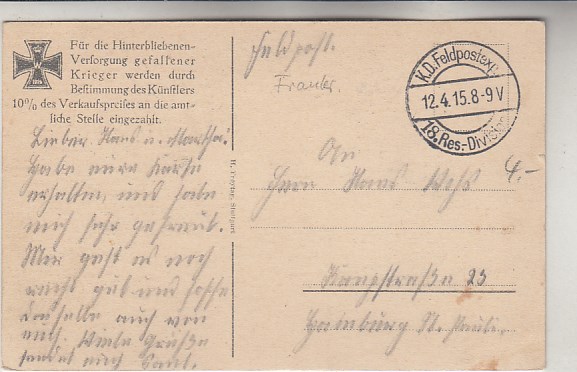 Für die Hinterbliebenen-
Versorgung gefallener
Krieger werden durch
Bestimmung des Künstlers
10% des Verkaufspreises an die amt-
liche Stelle eingezahlt.
Lieber Hans u. Martha!
Habe eure Karte
erhalten, und habe
mich sehr gefreut.
Mir geht es noch
recht gut und hoffe
dasselbe auch von
euch. Viele Grüße
sendet euch
H. Freytag, Stuttgart
Feldpost.
K.D. Feldpostexp.
12.4.15.8-9V
18. Res.-Division
An
Herrn Hans
4.-
23
Hamburg St. Pauli.